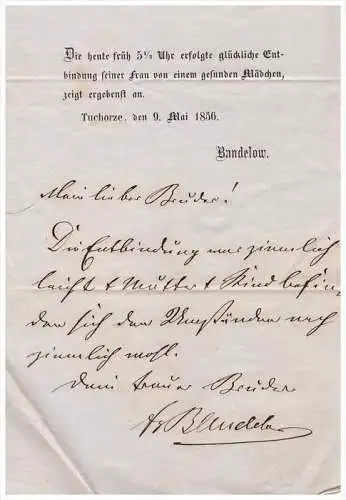 Die heute früh 5½ Uhr erfolgte glückliche Ent-
bindung seiner Frau von einem gesunden Mädchen,
zeigt ergebenst an.
Tuchorze, den 9. Mai 1856.
Bandelow.
Mein lieber Bruder!
Die Entbindung war ziemlich
leicht & Mutter & Kind befin-
den sich den Umständen nach
ziemlich wohl.
Dein treuer Bruder
Bandelow